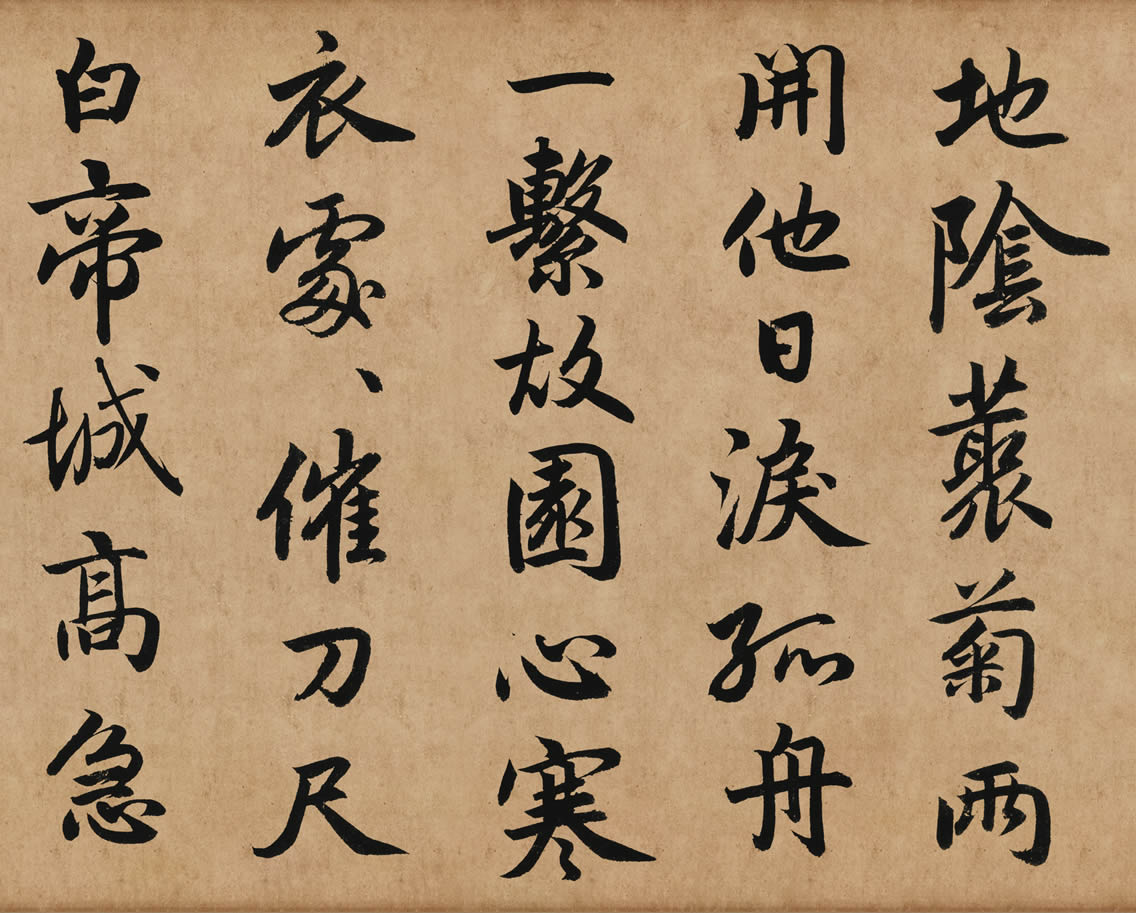 地陰藂菊兩
開他日淚孤舟
一繫故園心寒
衣處、催刀尺
白帝城髙急